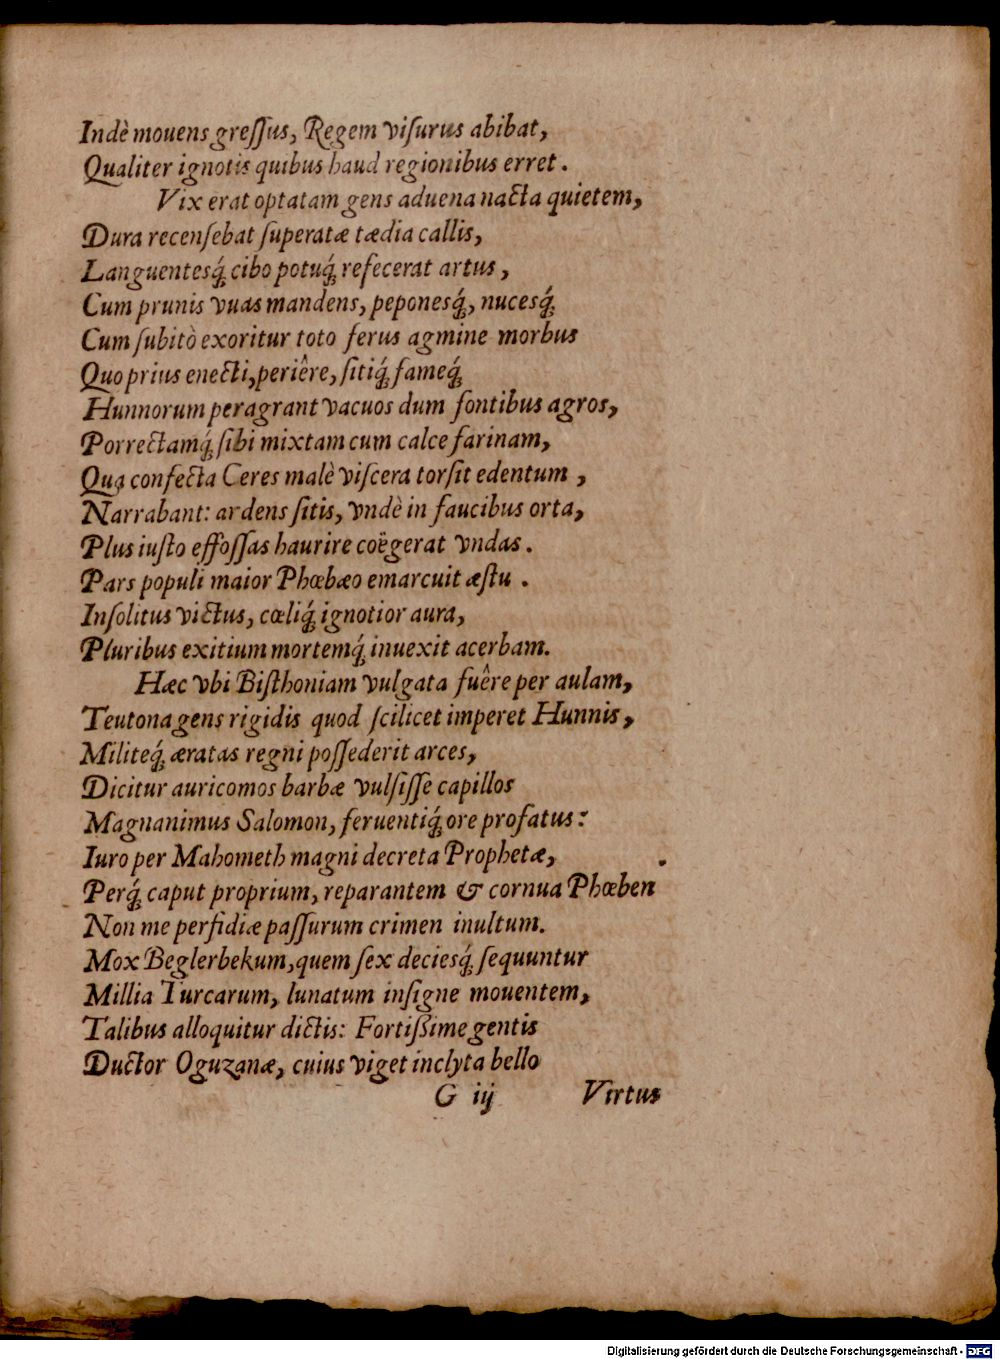 Indè mouens greſſus, Regem viſurus abibat,
Qualiter ignotis quibus haud regionibus erret.
Vix erat optatam gens aduena nacta quietem,
Dura recenſebat ſuperatæ tædia callis,
Languentesq́; cibo potuq́; refecerat artus,
Cum prunis vuas mandens, peponesq́;, nucesq́;
Cum ſubitò exoritur toto ferus agmine morbus
Quo prius enecti, periêre, ſitiq́; fameq́;
Hunnorum peragrant vacuos dum fontibus agros,
Porrectamq́; ſibi mixtam cum calce farinam,
Qua confecta Ceres malè viſcera torſit edentum,
Narrabant: ardens ſitis, vndè in faucibus orta,
Plus iuſto effoſſas haurire coëgerat vndas.
Pars populi maior Phœbæo emarcuit æſtu.
Inſolitus victus, cœliq́; ignotior aura,
Pluribus exitium mortemq́; inuexit acerbam.
Hæc vbi Biſthoniam vulgata fuêre per aulam,
Teutona gens rigidis quod ſcilicet imperet Hunnis,
Militeq́; æratas regni poſſederit arces,
Dicitur auricomos barbæ vulſiſſe capillos
Magnanimus Salomon, feruentiq́; ore profatus:
Iuro per Mahometh magni decreta Prophetæ,
Perq́; caput proprium, reparantem & cornua Phœben
Non me perfidiæ paſſurum crimen inultum.
Mox Beglerbekum, quem ſex deciesq́; ſequuntur
Millia Turcarum, lunatum inſigne mouentem,
Talibus alloquitur dictis: Fortißime gentis
Ductor Oguzanæ, cuius viget inclyta bello
G iij Virtus
Digitalisierung gefördert durch die Deutsche Forschungsgemeinschaft - DFG